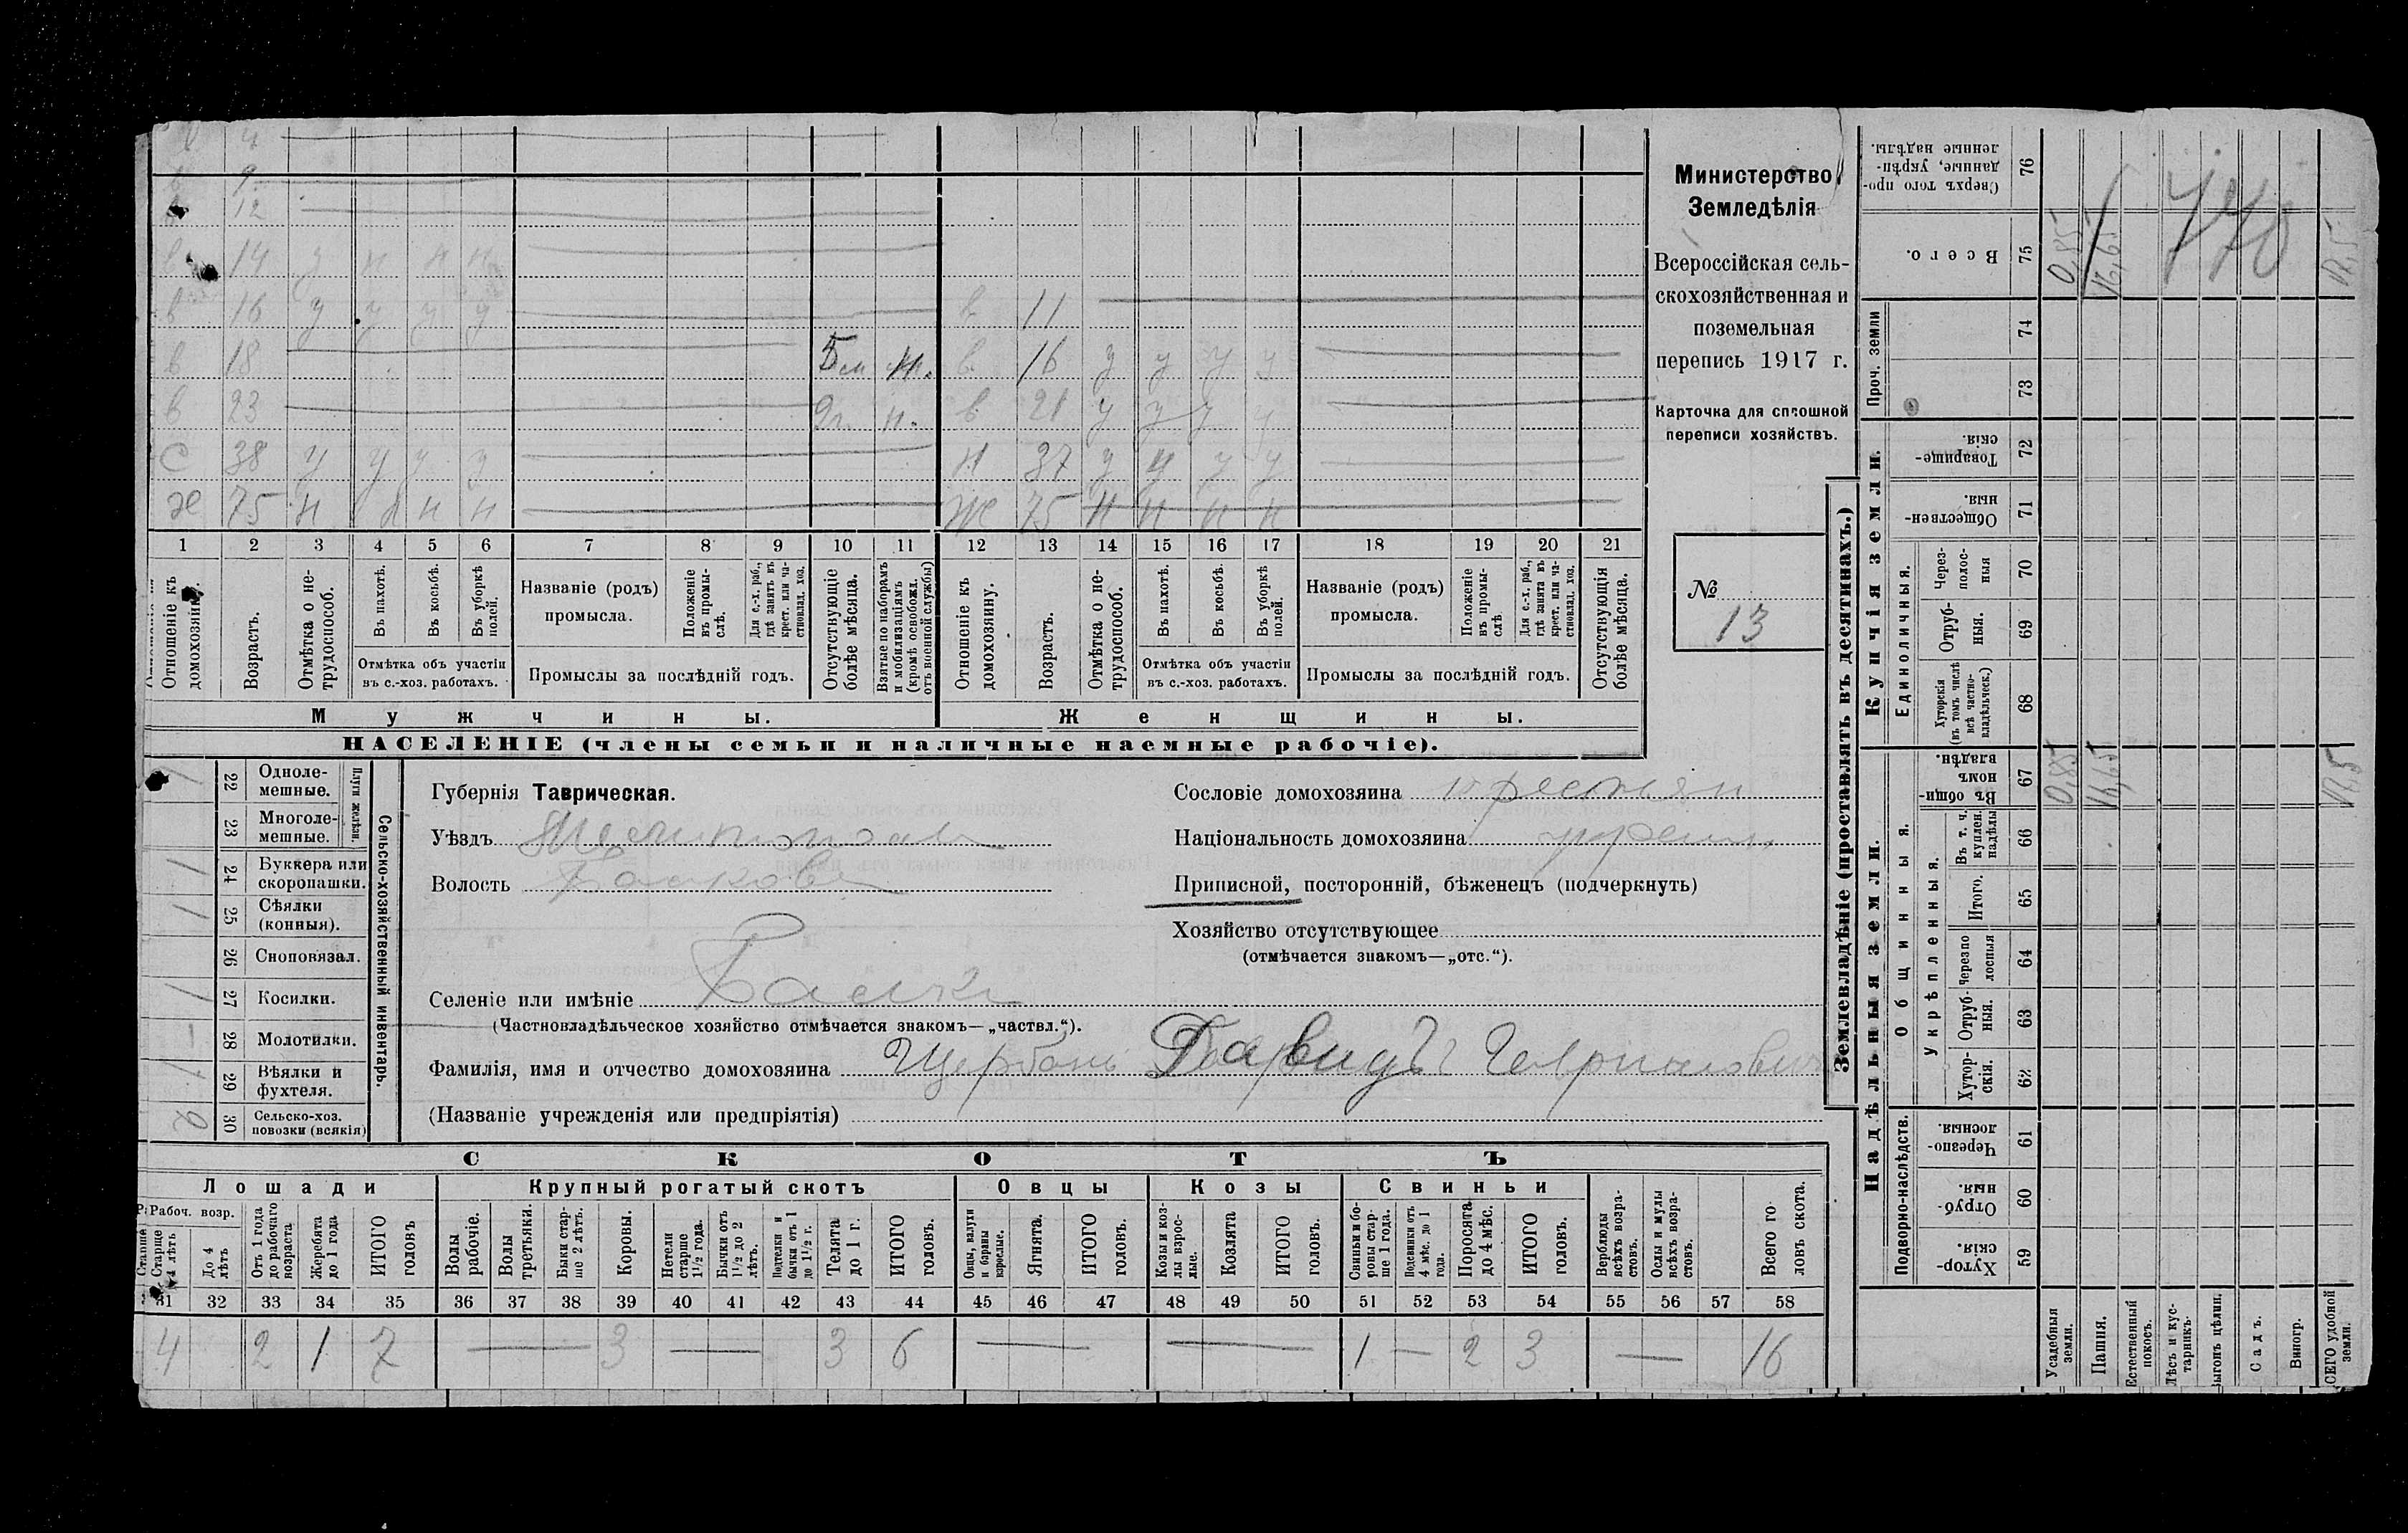 Министерство
Земледѣлія
Всероссійская сель-
скохозяйственная и
поземельная
перепись 1917 г.
Карточка для сплошной
переписи хозяйствъ.
№
13
4
9
12
в 14 у н н н
в 16 у у у у в 11
в 18 5 м н. в 16 у у у у
в 23 2 г. н. в 21 у у у у
С 38 у у у у 37 у у у у
Ж 75 н н н Ж 75 н н н н
1 2 3 4 5 6 7 8 9 10 11 12 13 14 15 16 17 18 19 20 21
Отношеніе къ домохозяину.
Возрастъ.
Отмѣтка о не-
трудоспособ.
Въ пахотѣ.
Въ косьбѣ.
Въ уборкѣ полей.
Отмѣтка объ участіи
въ с.-хоз. работахъ.
Названіе (родъ)
промысла.
Положеніе въ промы-
слѣ.
Для с.-х. раб., гдѣ занятъ въ крест. или ча-
стновлад. хоз.
Промыслы за послѣдній годъ.
Отсутствующіе болѣе мѣсяца.
Взятые по наборамъ и мобилизаціямъ (кромѣ освобожд. отъ военной службы)
Отношеніе къ домохозяину.
Возрастъ.
Отмѣтка о не-
трудоспособ.
Въ пахотѣ.
Въ косьбѣ.
Въ уборкѣ полей.
Отмѣтка объ участіи
въ с.-хоз. работахъ.
Названіе (родъ)
промысла.
Положеніе въ промы-
слѣ
Для с.-х. раб., гдѣ занята въ крест. или ча-
стновлад. хоз.
Промыслы за послѣдній годъ.
Отсутствующія болѣе мѣсяца.
Мужчины.
Женщины.
НАСЕЛЕНІЕ (члены семьи и наличные наемные рабочіе).
Сельско-хозяйственный инвентарь.
Плуги желѣзн.
1 22 Одноле-
мешные.
23 Многоле-
мешные.
1 24 Буккера или
скоропашки.
1 25 Сѣялки
(конныя).
26 Сноповязал.
1 27 Косилки.
– 28 Молотилки.
1 29 Вѣялки и
фухтеля.
2 30 Сельско-хоз.
повозки (всякія)
Губернія Таврическая.
Уѣздъ Мелитопол
Волость Балков
Селеніе или имѣніе Балки
(Частновладѣльческое хозяйство отмѣчается знакомъ—„частвл.“).
Фамилія, имя и отчество домохозяина Щербань Давидъ Гавриилович
(Названіе учрежденія или предпріятія)
Сословіе домохозяина крестьян
Національность домохозяина
Приписной, посторонній, бѣженецъ (подчеркнуть)
Хозяйство отсутствующее
(отмѣчается знакомъ—„отс.“).
СКОТЪ
Лошади
Крупный рогатый скотъ
Овцы
Козы
Свиньи
Рабоч. возр.
Старше 4 лѣтъ
До 4 лѣтъ
Отъ 1 года до рабочаго возраста
Жеребята до 1 года
ИТОГО головъ
Волы рабочіе.
Волы третьяки.
Быки стар-
ше 2 лѣтъ.
Коровы.
Нетели старше 1½ года.
Бычки отъ 1½ до 2 лѣтъ.
Подтелки и бычки отъ 1 до 1½ г.
Телята до 1 г.
ИТОГО головъ.
Овцы, валухи и бараны взрослые.
Ягнята.
ИТОГО головъ.
Козы и коз-
лы взрос-
лые.
Козлята
ИТОГО головъ.
Свиньи и бо-
ровы стар-
ше 1 года.
Подсвинки отъ 4 мѣс. до 1 года.
Поросята до 4 мѣс.
ИТОГО головъ.
Верблюды всѣхъ возра-
стовъ.
Ослы и мулы всѣхъ возра-
стовъ.
Всего го-
ловъ скота.
31 32 33 34 35 36 37 38 39 40 41 42 43 44 45 46 47 48 49 50 51 52 53 54 55 56 57 58
4 2 1 7 — 3 — 3 6 — — 1 — 2 3 — 16
Землевладѣніе (проставлять въ десятинахъ.)
Надѣльныя земли.
Купчія земли.
Проч. земли
Подворно-наслѣдств.
Общинныя.
Укрѣпленныя.
Единоличныя.
Хутор-
скія. 59
Отруб-
ныя. 60
Черезпо-
лосныя. 61
Хутор-
скія. 62
Отруб-
ныя. 63
Черезпо
лосныя 64
Итого. 65
Въ т. ч. куплен. надѣлы 66
Въ общин-
номъ владѣн. 67
Хуторскія (въ томъ числѣ всѣ частно-
владѣльческ.) 68
Отруб-
ныя. 69
Через-
полос-
ныя 70
Обществен-
ныя. 71
Товарище-
скія. 72
73
74
Всего. 75
Сверхъ того про-
данные, укрѣп-
ленные надѣлы. 76
Усадебныя земли.
Пашня.
Естественный покосъ.
Лѣсъ и кус-
тарникъ.
Выгонъ цѣлин.
Садъ.
Виногр.
ВСЕГО удобной земли.
0,85
16,65
17,5
0,85
16,65
17,5